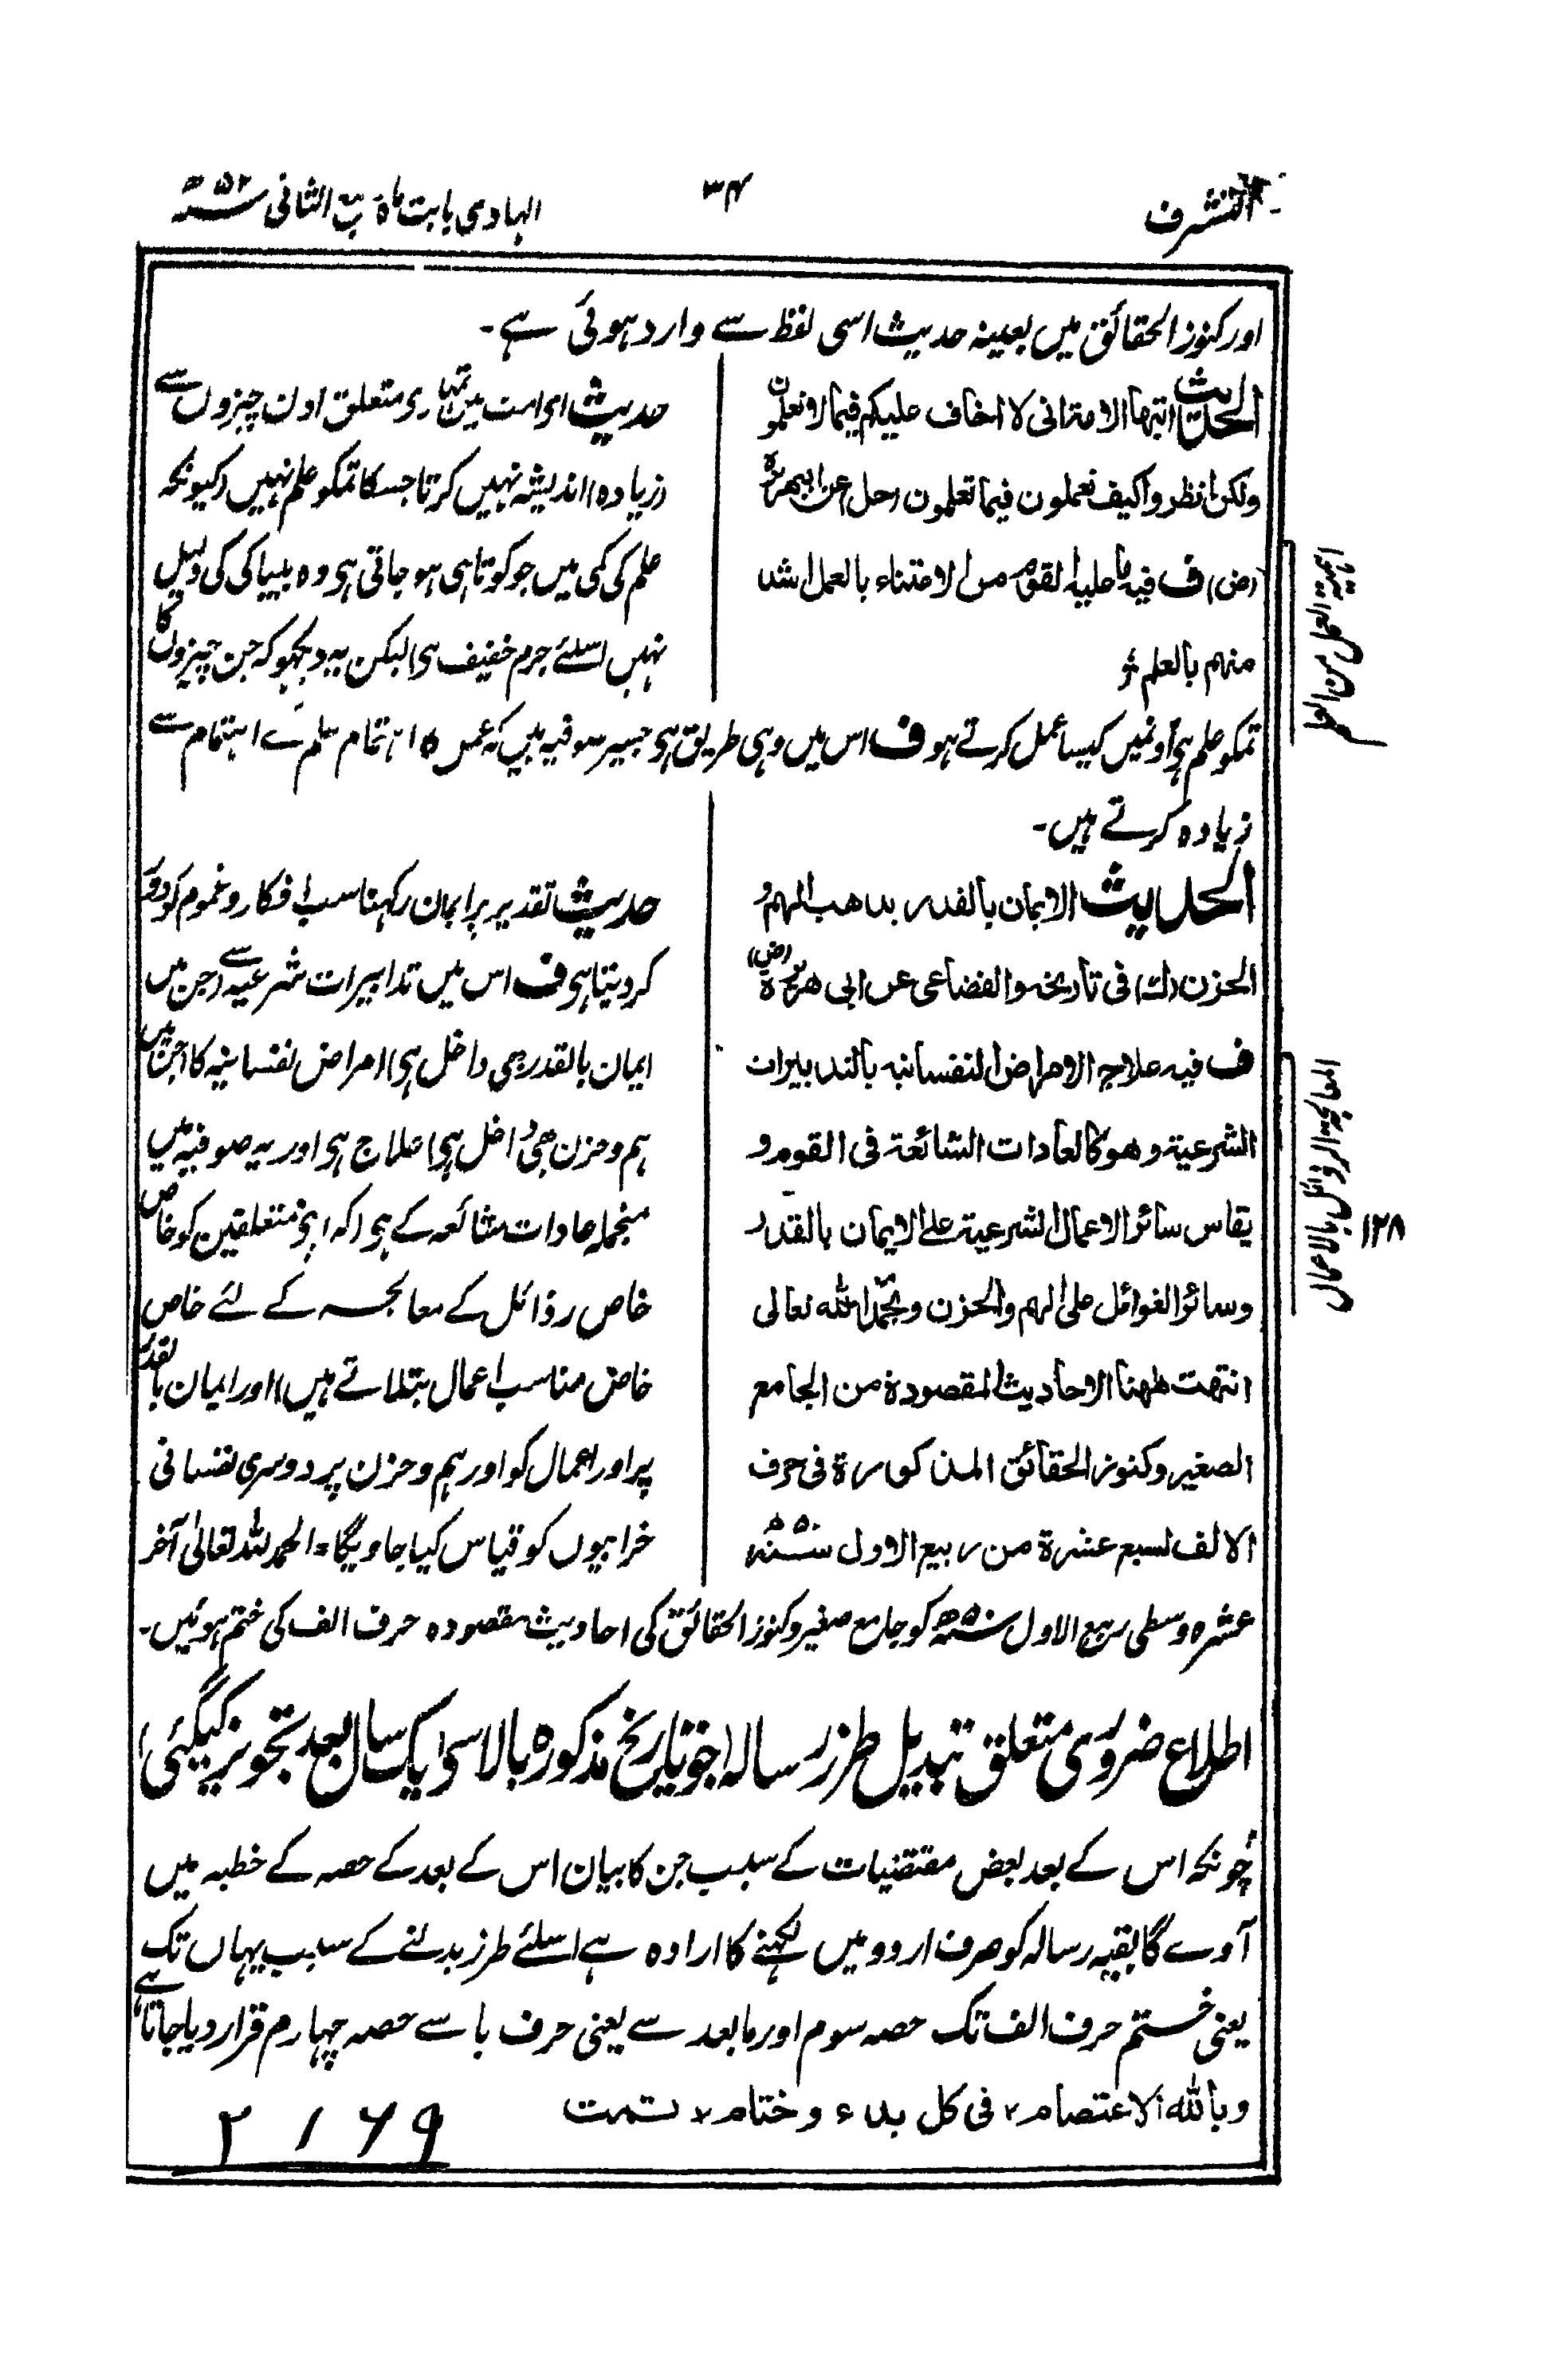 التشرف
۳۴
الہادی بابت ماہ ربیع الثانی ۵۲ھ
اور کنوز الحقائق میں بعینہ حدیث اسی لفظ سے وارد ہوئی ہے۔
الحدیث ایتہا الامۃ انی لا اخاف علیکم فیما لا تعلمون
ولکن انظروا کیف تعملون فیما تعلمون (حل) عن ابی ہریرۃ
(ض) ف فیہ ما علیہ القوم من الاعتناء بالعمل اشد
منہم بالعلم
حدیث اے امت میں تمہاری متعلق اون چیزوں سے
(زیادہ) اندیشہ نہیں کرتا جسکا تمکو علم نہیں (کیونکہ
علم کی کمی میں جو کوتاہی ہو جاتی ہی وہ بیباکی کی دلیل
نہیں اسلئے جرم خفیف ہی) لیکن یہ دیکھو کہ جن چیزوں کا
تمکو علم ہی اونمیں کیسا عمل کرتے ہو ف اس میں وہی طریق ہی جسپر صوفیہ ہیں کہ عمل کا اہتمام علم کے اہتمام سے
زیادہ کرتے ہیں۔
الحدیث الایمان بالقدر یذھب الہم و
الحزن (ک) فی تاریخہ والقضاعی عن ابی ھریرۃ (ض)
ف فیہ علاج الامراض النفسانیہ بالتدبیرات
الشرعیۃ وھو کالعادات الشائعۃ فی القوم و
یقاس سائر الاعمال الشرعیۃ علی الایمان بالقدر
وسائر الغوائل علی الہم والحزن وبحمد اللہ تعالی
انتہت ھہنا الاحادیث المقصودۃ من الجامع
الصغیر وکنوز الحقائق المذکورۃ فی حرف
الالف لسبع عشرۃ من ربیع الاول ۵۰ھ
حدیث تقدیر پر ایمان رکہنا سب افکار و غموم کو دور
کر دیتا ہی ف اس میں تدابیرات شرعیہ سے (جن میں
ایمان بالقدر بھی داخل ہی) امراض نفسانیہ کا (جن میں
ہم و حزن بھی داخل ہی) علاج ہی اور یہ صوفیہ میں
منجملہ عادات شائعہ کے ہی (کہ اپنی متعلقین کو خاص
خاص رذائل کے معالجہ کے لئے خاص
خاص مناسب اعمال بتلاتے ہیں) اور ایمان بالقدر
پر اور اعمال کو اور ہم و حزن پر دوسری نفسانی
خرابیوں کو قیاس کیا جاویگا۔ الحمد للہ تعالیٰ آخر
عشرہ وسطی ربیع الاول ۵۰ھ کو جامع صغیر و کنوز الحقائق کی احادیث مقصودہ حرف الف کی ختم ہوئیں۔
اطلاع ضروری متعلق تبدیل طرز رسالہ (جو تاریخ مذکورہ بالا سی ایک سال بعد تجویز کیگئی)
چونکہ اس کے بعد بعض مقتضیات کے سبب جن کا بیان اس کے بعد کے حصہ کے خطبہ میں
آوے گا بقیہ رسالہ کو صرف اردو میں لکہنے کا ارادہ ہے اسلئے طرز بدلنے کے سبب یہاں تک
یعنی ختم حرف الف تک حصہ سوم اور مابعد سے یعنی حرف با سے حصہ چہارم قرار دیا جاتا ہے
وباللہ الاعتصام، فی کل بدء و ختام، تمت
۲۱۶۹
المعالجۃ الرذائل بالاعمال
۱۲۸